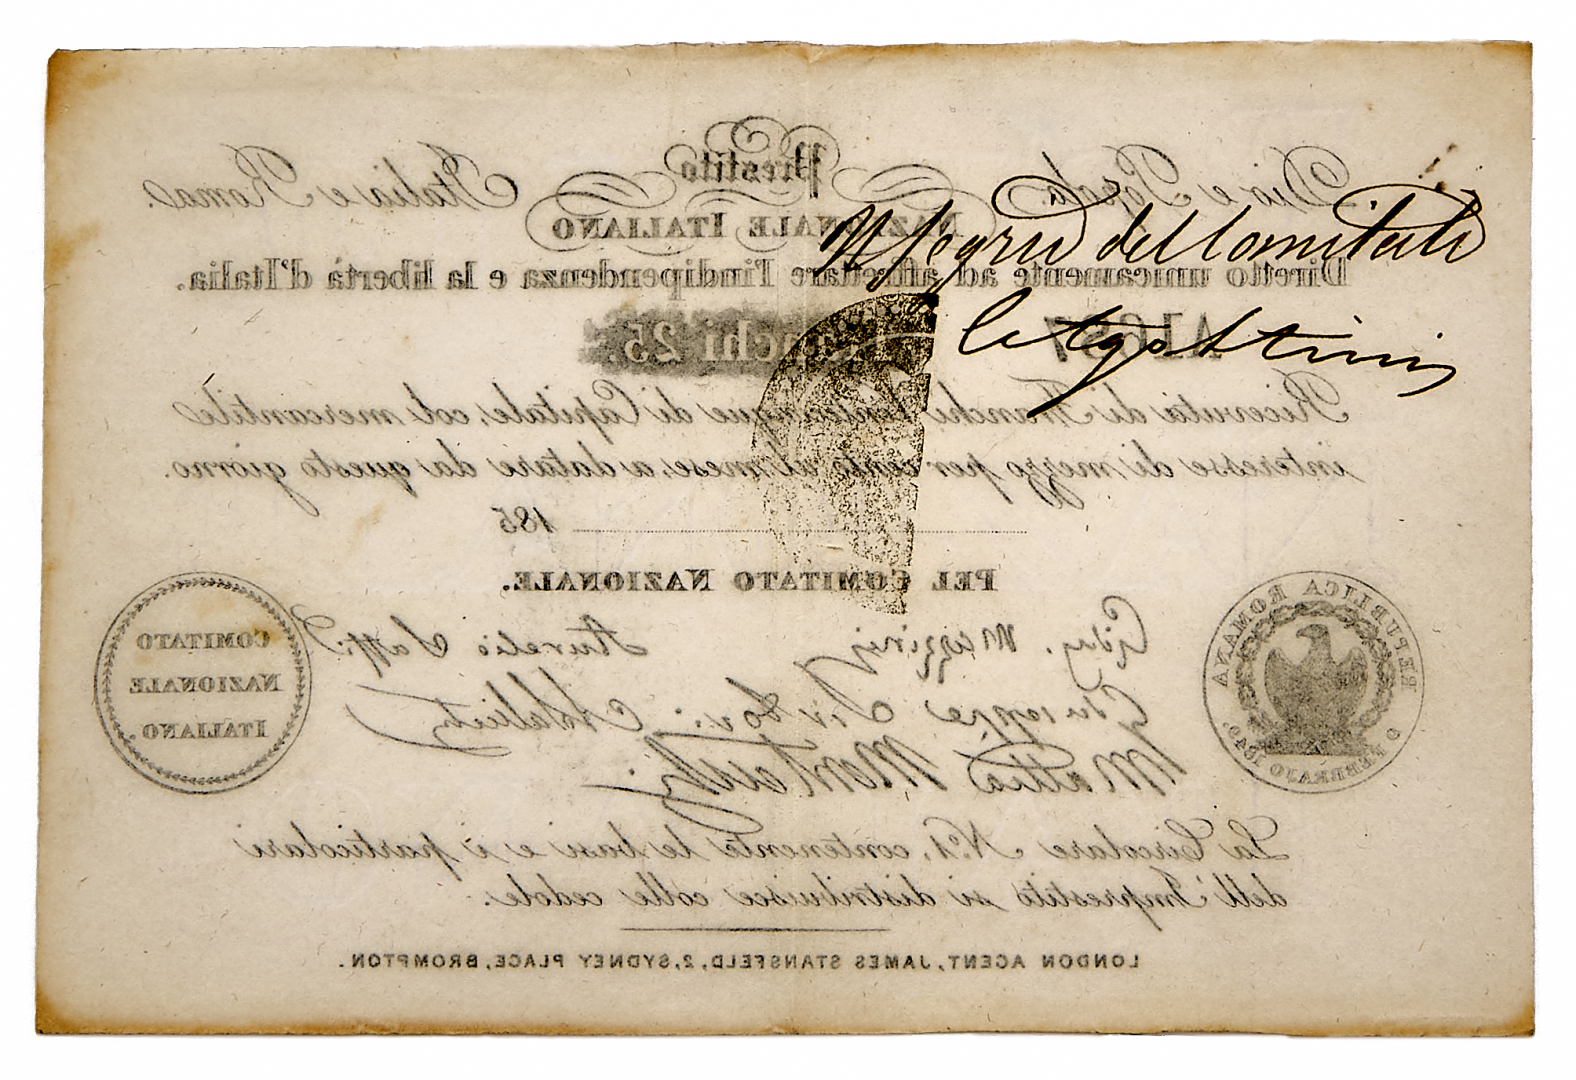 Dio e Popolo.
Prestito
Italia e Roma.
NAZIONALE ITALIANO
Il Segrio del Comitato
Diretto unicamente ad affrettare l'indipendenza e la libertà d'Italia.
Franchi 25.
C Agostini
Ricevuta di Franchi Venticinque di Capitale, col mercantile
interesse di mezzo per cento al mese, a datare da questo giorno.
185
PEL COMITATO NAZIONALE.
REPUBBLICA ROMANA
9 FEBBRAJO 1849.
Gius. Mazzini
Aurelio Saffi
COMITATO
NAZIONALE
ITALIANO.
Giuseppe Sirtori
Mattia Montecchi
La Circolare N.º 1, contenente le basi e i particolari
dell'Imprestito si distribuisce colle cedole.
LONDON AGENT, JAMES STANSFELD, 2, SYDNEY PLACE, BROMPTON.